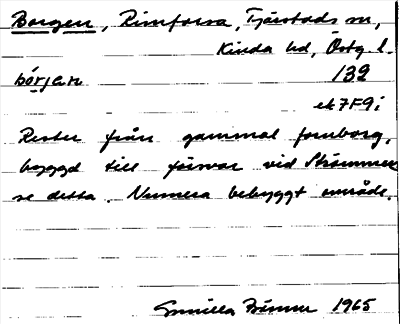 Borgen, Rimforsa, Tjärstads sn,
Kinda hd, Östg. l.
bórjan 132
ek 7F9i
Rester från gammal fornborg,
byggd till försvar vid Strömmen
se detta. Numera bebyggt område.
Gunilla 1965